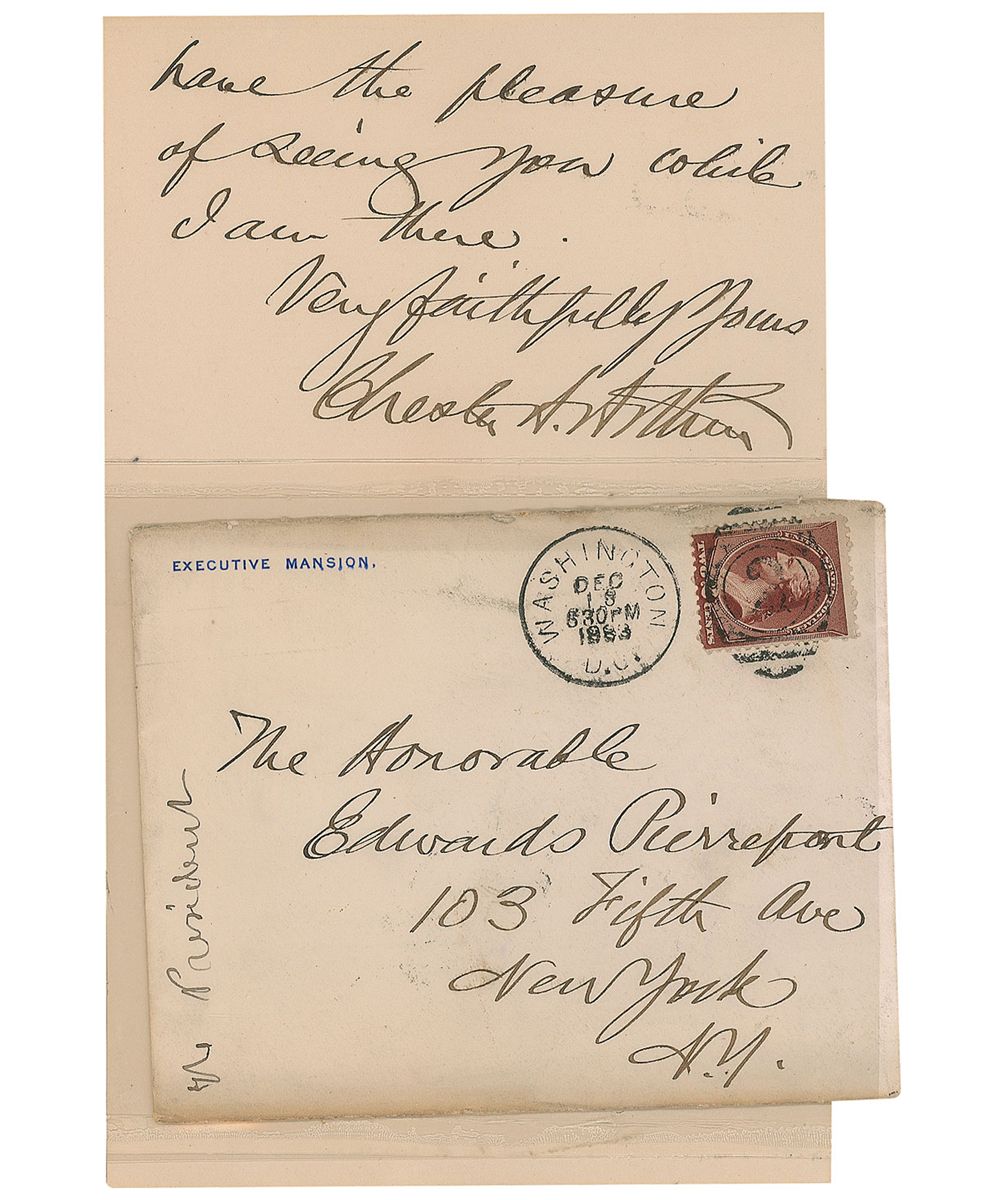 have the pleasure
of seeing you while
I am there.
Very faithfully Yours
Chester A. Arthur
EXECUTIVE MANSION,
WASHINGTON
DEC
18
630PM
1883
D.C.
TWO
CENTS
The Honorable
Edwards Pierrepont
103 Fifth Ave
New York
N.Y.
President